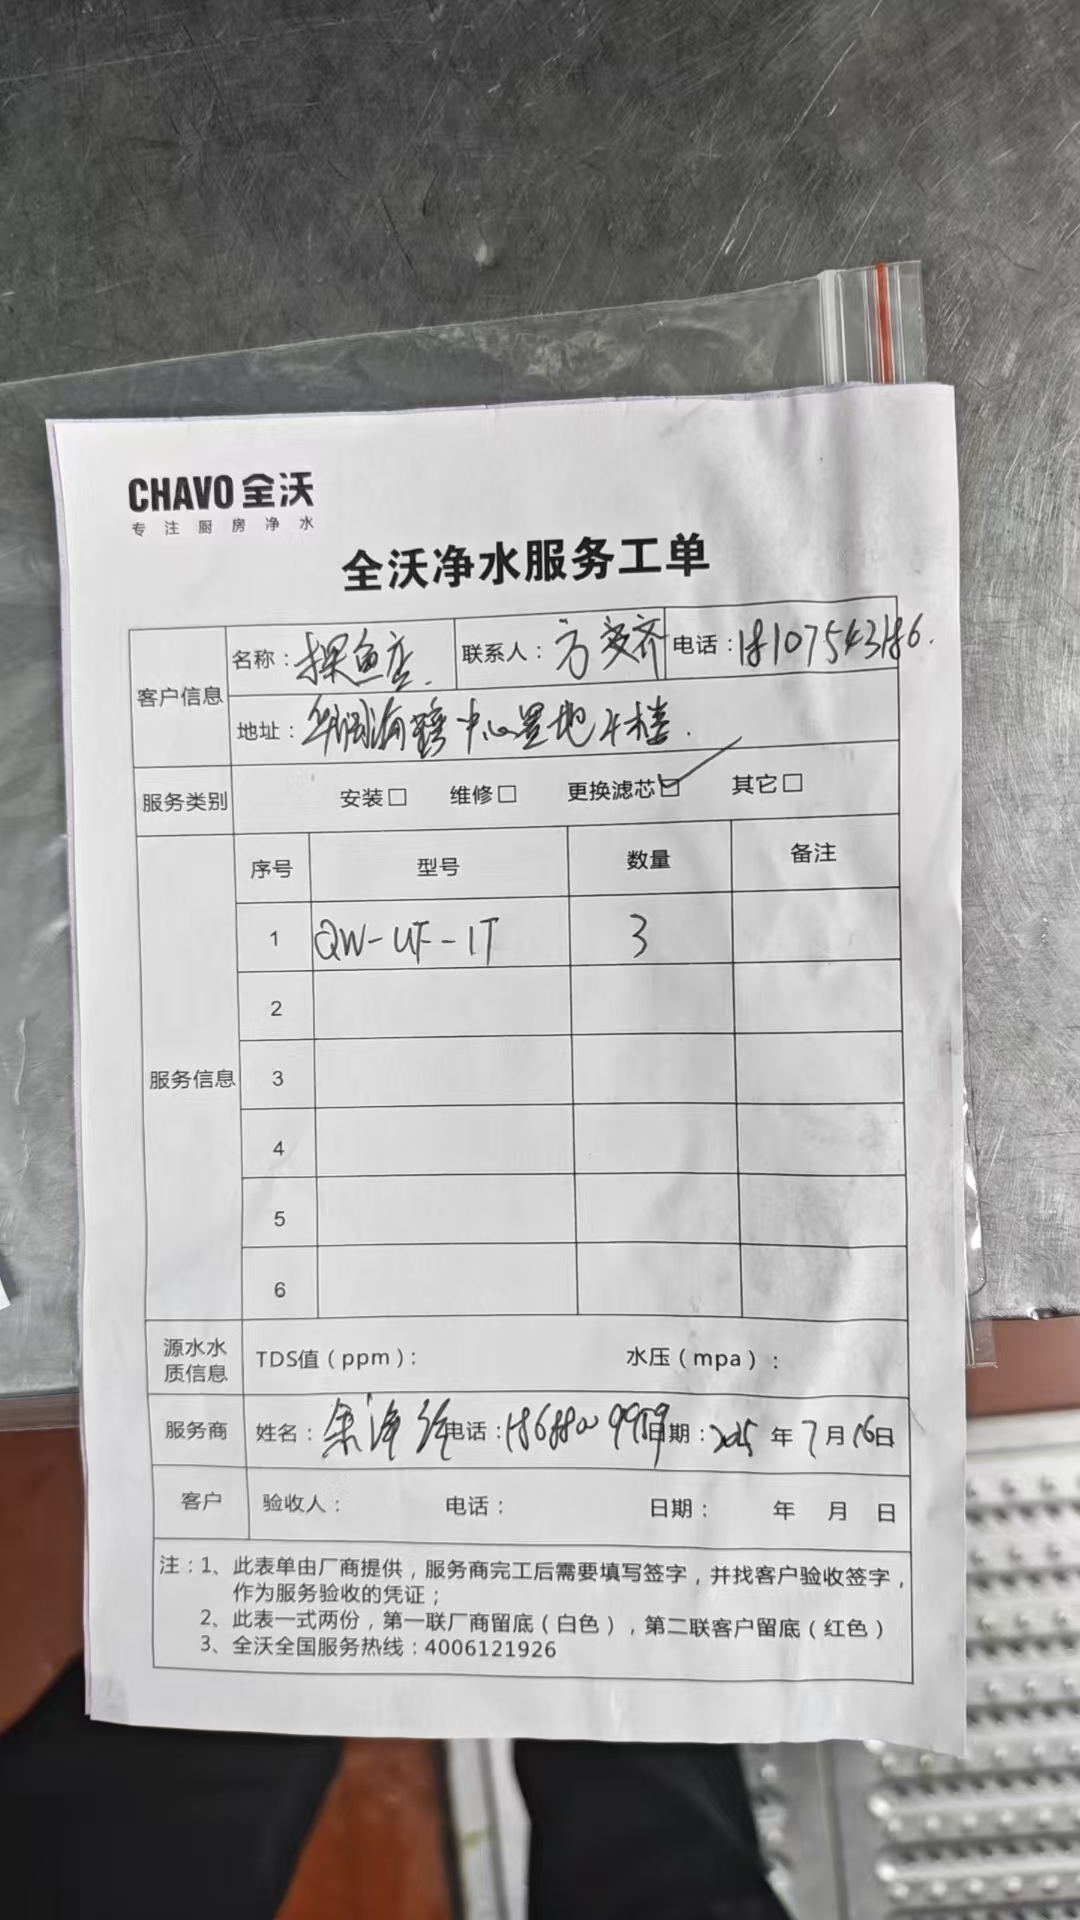 CHAVO 全沃
专注厨房净水
全沃净水服务工单
客户信息 名称：探鱼店. 联系人：方 齐 电话：18107543186.
地址：华润海 中心置地4楼.
服务类别 安装□ 维修□ 更换滤芯☑ 其它□
服务信息 序号 型号 数量 备注
1 QW-UF-1T 3
2
3
4
5
6
源水水质信息 TDS值（ppm）： 水压（mpa）：
服务商 姓名：余净 电话： 日期：2025 年 7 月 16 日
客户 验收人： 电话： 日期： 年 月 日
注：1、此表单由厂商提供，服务商完工后需要填写签字，并找客户验收签字，
作为服务验收的凭证；
2、此表一式两份，第一联厂商留底（白色），第二联客户留底（红色）
3、全沃全国服务热线：4006121926